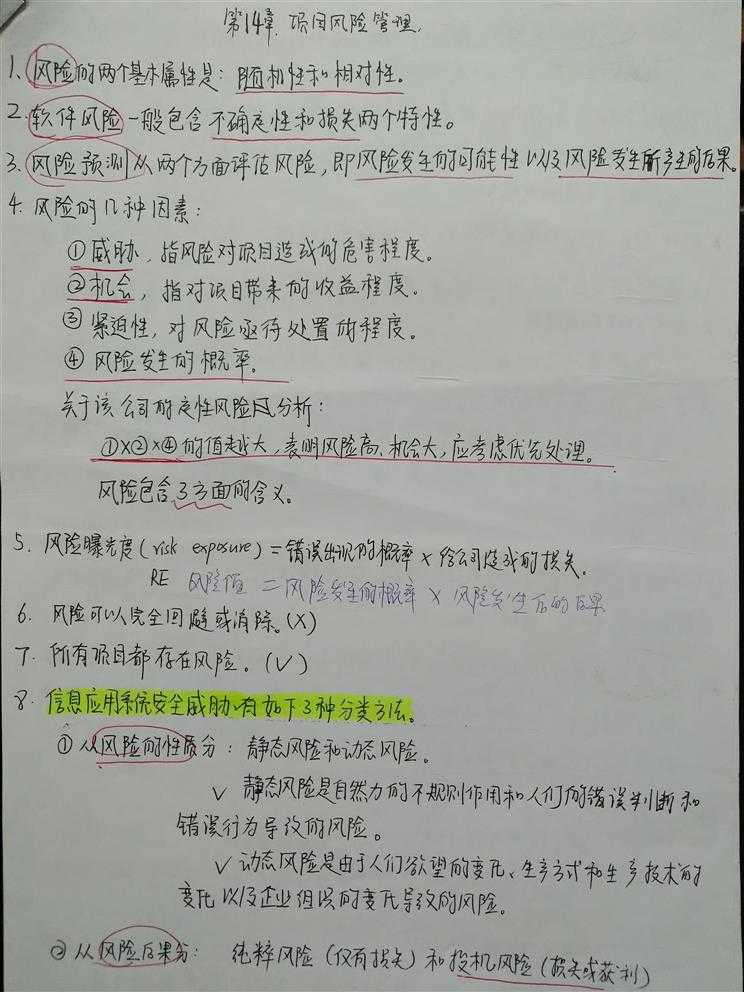 第14章. 项目风险管理.
1. 风险的两个基本属性是：随机性和相对性。
2. 软件风险一般包含不确定性和损失两个特性。
3. 风险预测从两个方面评估风险，即风险发生的可能性以及风险发生所产生的后果。
4. 风险的几种因素：
①威胁，指风险对项目造成的危害程度。
②机会，指对项目带来的收益程度。
③紧迫性，对风险亟待处置的程度。
④风险发生的概率。
关于该公司的定性风险分析：
①×②×④的值越大，表明风险高、机会大，应考虑优先处理。
风险包含3方面的含义。
5. 风险曝光度(risk exposure)=错误出现的概率×给公司造成的损失.
RE 风险值=风险发生的概率×风险发生后的后果
6. 风险可以完全回避或消除。(×)
7. 所有项目都存在风险。(√)
8. 信息应用系统安全威胁有如下3种分类方法。
①从风险的性质分：静态风险和动态风险。
√ 静态风险是自然力的不规则作用和人们的错误判断和
错误行为导致的风险。
√ 动态风险是由于人们欲望的变化、生产方式和生产技术的
变化以及企业组织的变化导致的风险。
②从风险后果分：纯粹风险(仅有损失)和投机风险(损失或获利)